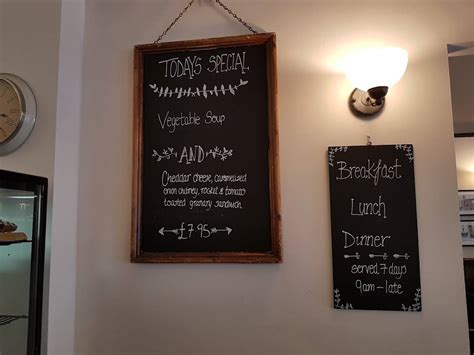 TODAYS SPECIAL
Vegetable Soup
AND
Cheddar cheese, caramelized
onion chutney, rocket & tomato
toasted granary sandwich
£7.95
Breakfast
Lunch
Dinner
served 7 days
9am-late